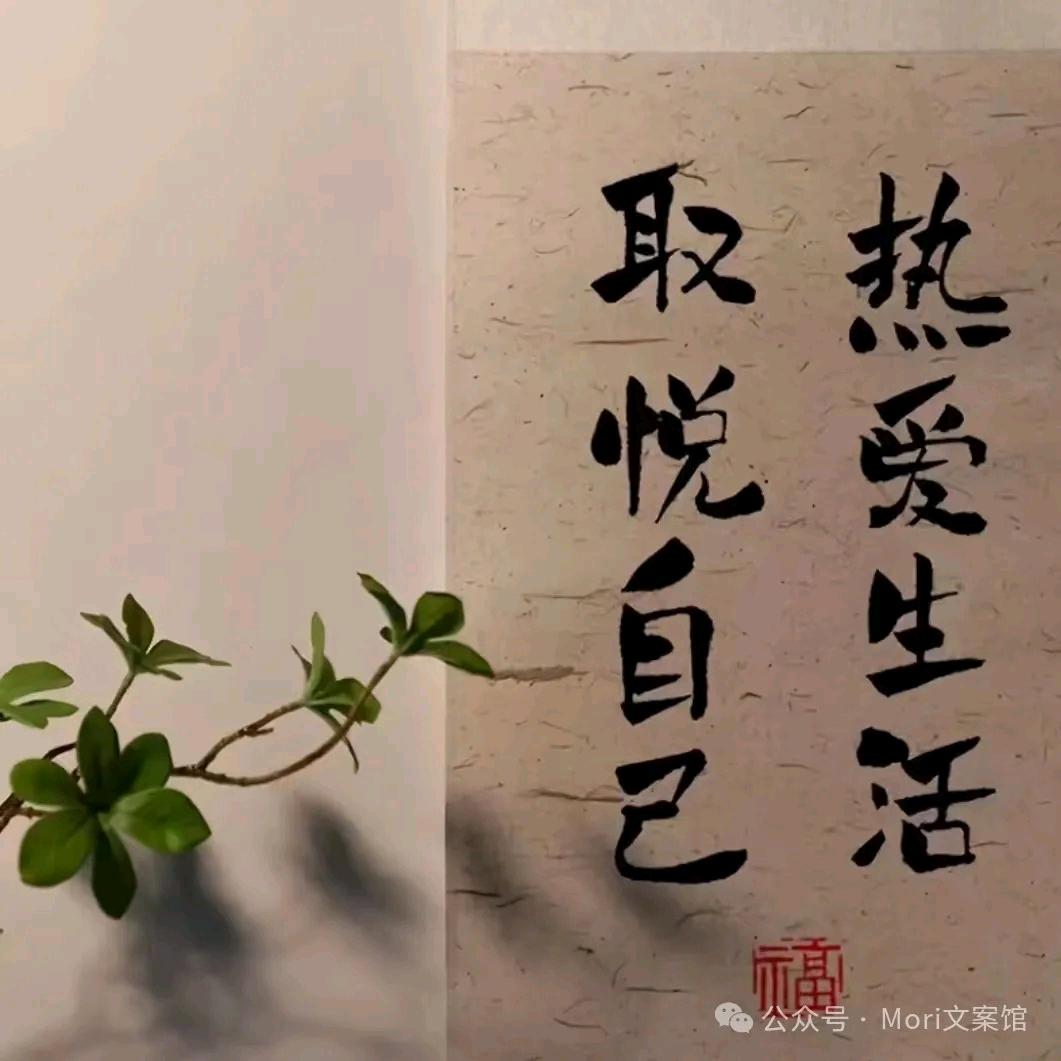 热爱生活
取悦自己
福
公众号 · Mori文案馆